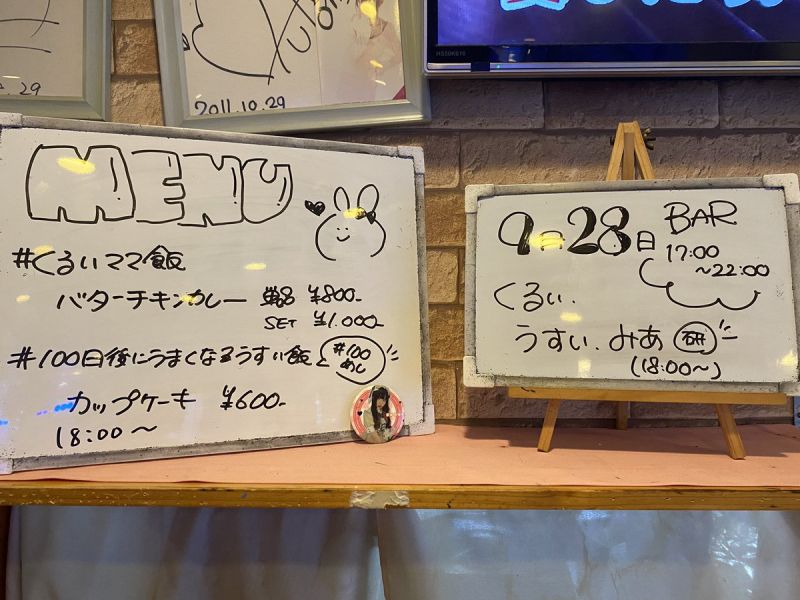 2011.10.29
HS50K610
MENU
#くるいママ飯
バターチキンカレー 単品 ¥800-
SET ¥1.000-
#100日後にうまくなるうすい飯 #100めし
カップケーキ ¥600-
18:00～
9月28日 BAR
17:00
～22:00
くるい.
うすい.みあ 研
(18:00～)